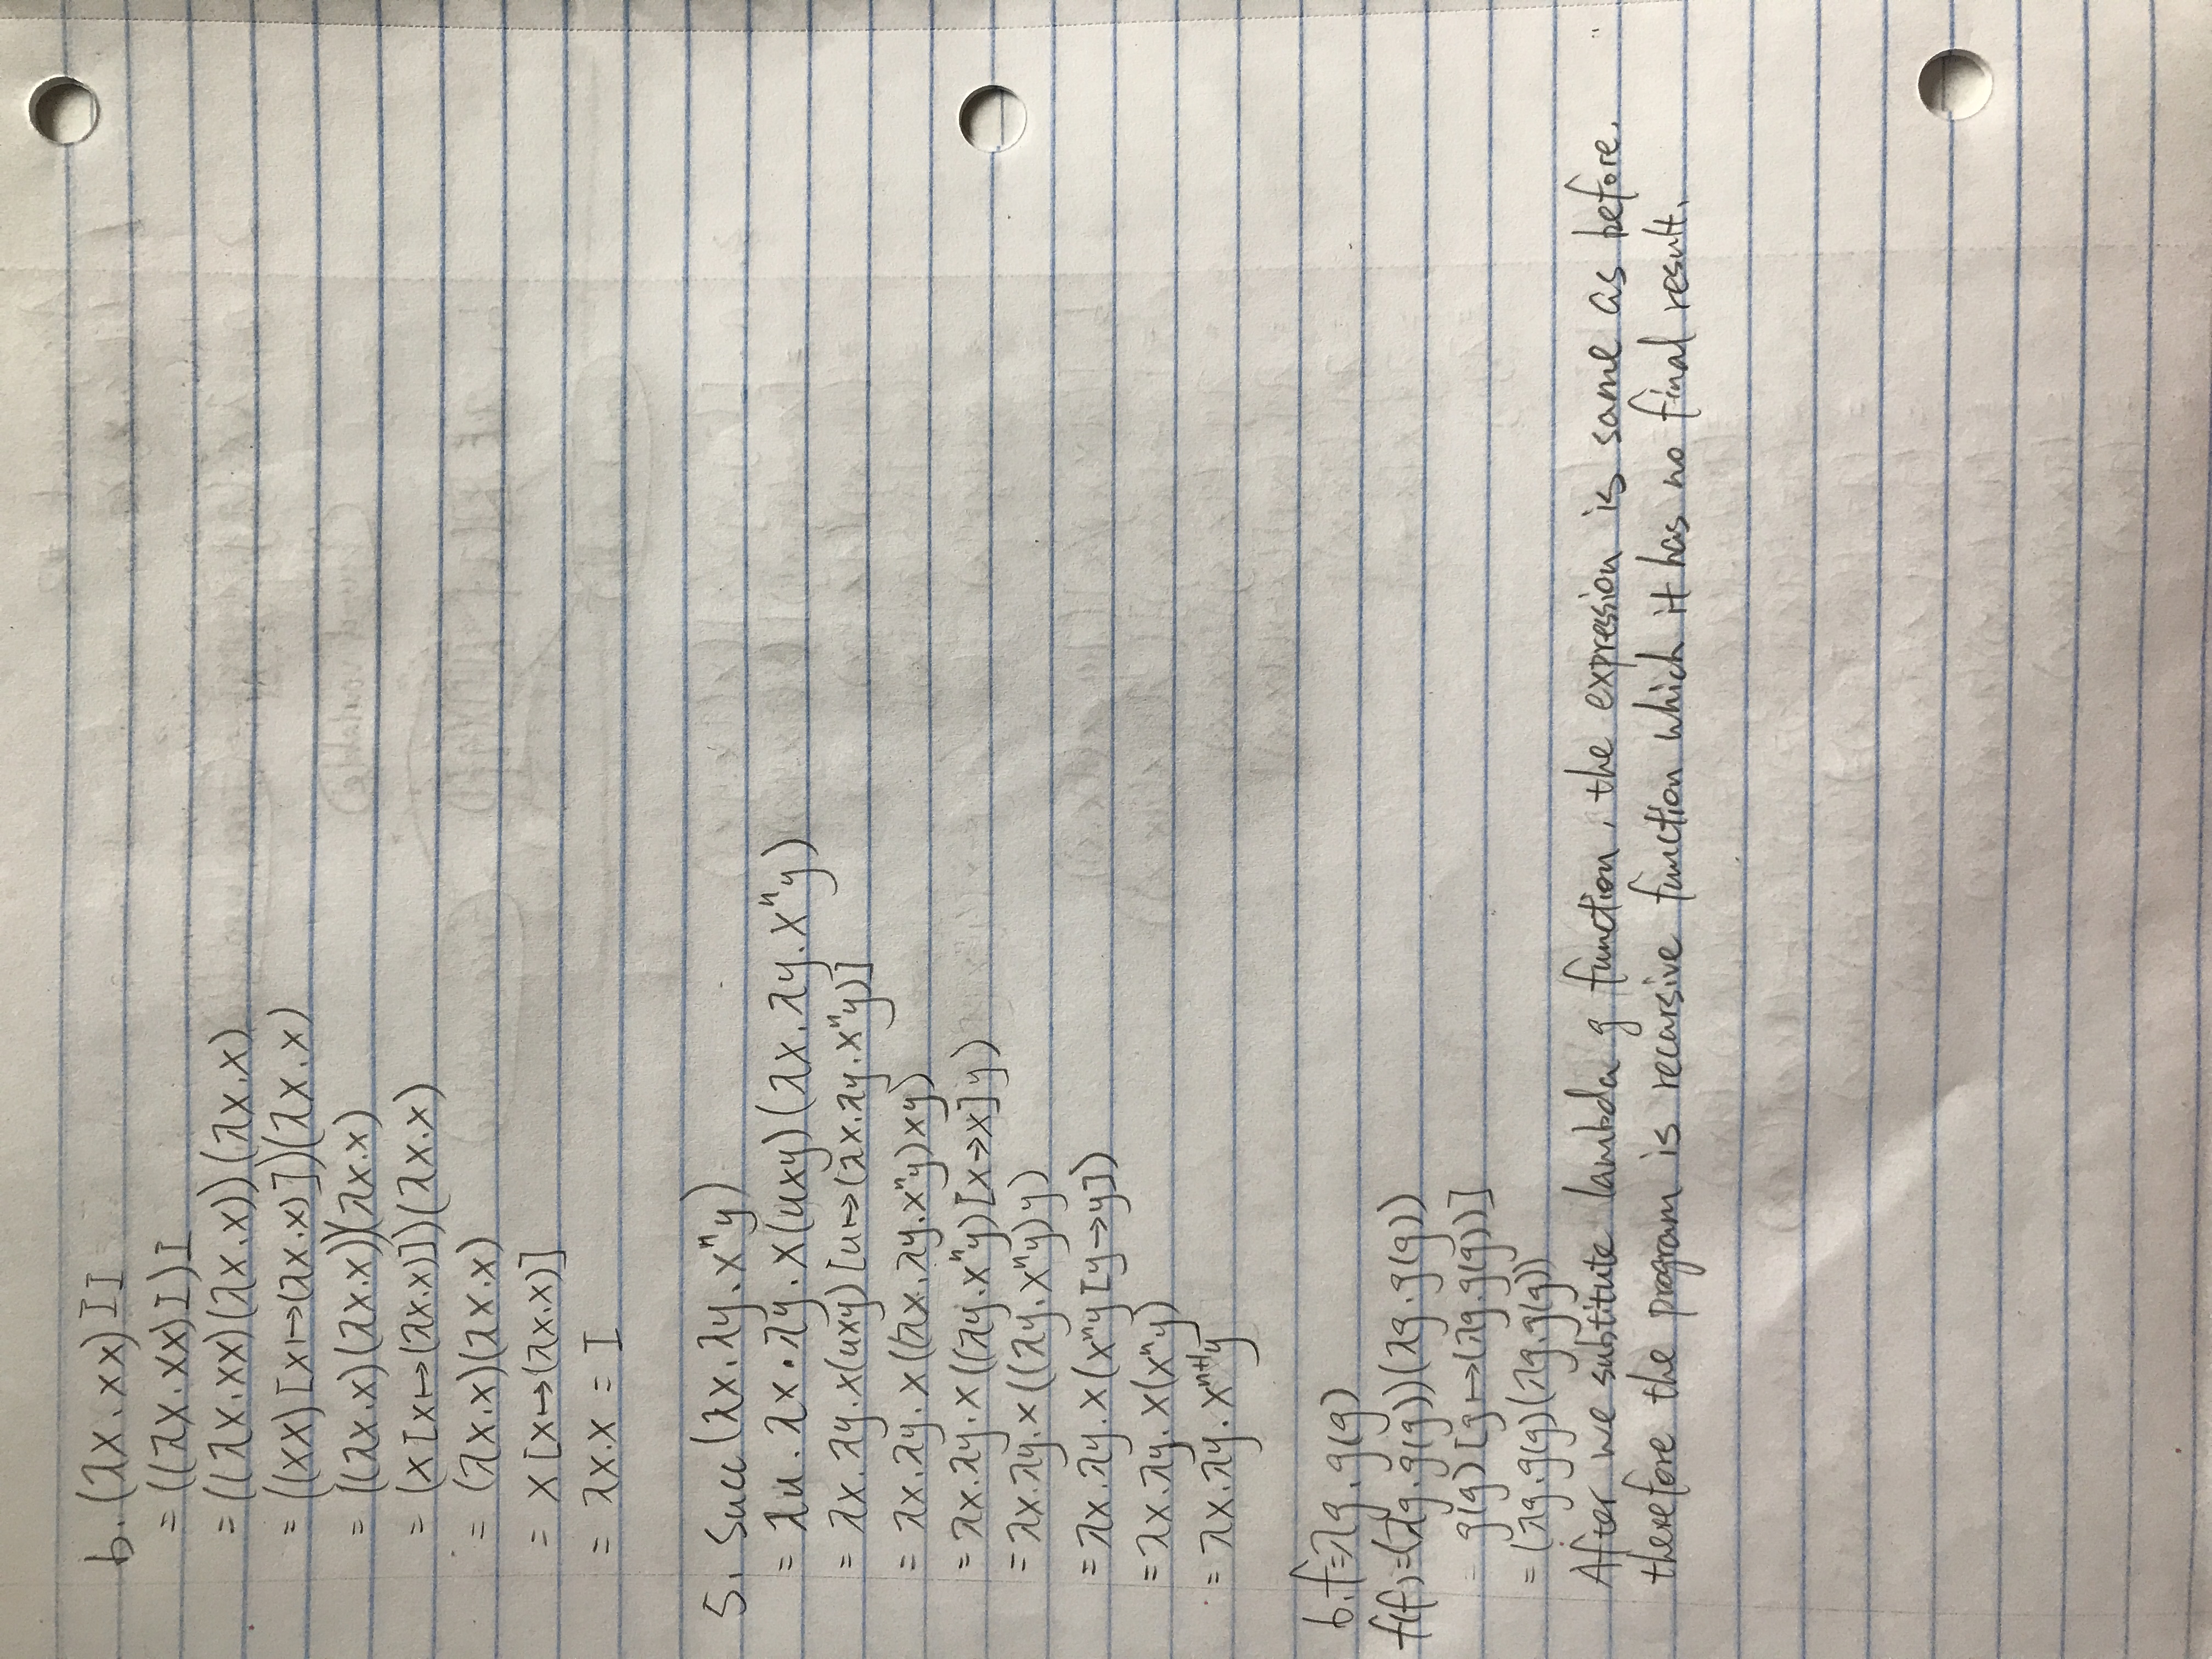 b. (λx.xx)II
= ((λx.xx)I)I
= ((λx.xx)(λx.x))(λx.x)
= ((xx)[x↦(λx.x)])(λx.x)
= ((λx.x)(λx.x))(λx.x)
= (x[x↦(λx.x)])(λx.x)
= (λx.x)(λx.x)
= x[x↦(λx.x)]
= λx.x = I
5. Succ(λx.λy.xⁿy)
= λu.λx.λy.x(uxy)(λx.λy.xⁿy)
= λx.λy.x(uxy)[u↦(λx.λy.xⁿy)]
= λx.λy.x((λx.λy.xⁿy)xy)
= λx.λy.x((λy.xⁿy)[x→x]y)
= λx.λy.x((λy.xⁿy)y)
= λx.λy.x(xⁿy[y→y])
= λx.λy.x(xⁿy)
= λx.λy.xⁿ⁺¹y
6. f=λg.g(g)
f(f)=(λg.g(g))(λg.g(g))
= g(g)[g↦(λg.g(g))]
= (λg.g(g)(λg.g(g))
After we subtitute lambda g function, the expression is same as before.
therefore the program is recursive function which it has no final result.